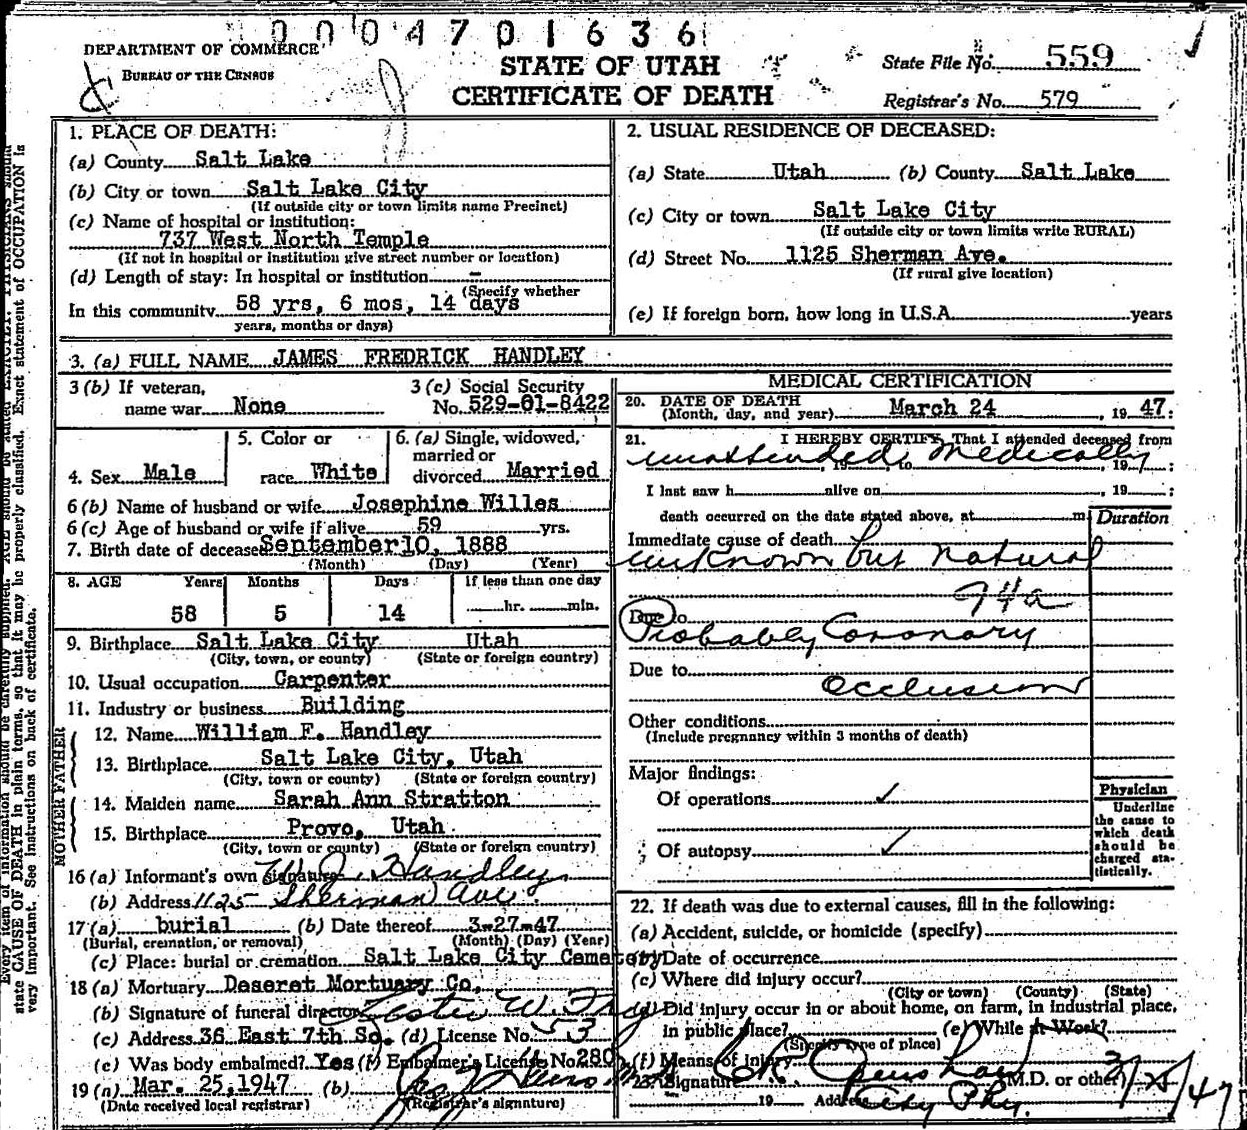 0004701636
DEPARTMENT OF COMMERCE
BUREAU OF THE CENSUS
STATE OF UTAH
CERTIFICATE OF DEATH
State File No. 559
Registrar's No. 579
1. PLACE OF DEATH:
(a) County Salt Lake
(b) City or town Salt Lake City
(If outside city or town limits name Precinct)
(c) Name of hospital or institution:
737 West North Temple
(If not in hospital or institution give street number or location)
(d) Length of stay: In hospital or institution -
(Specify whether
In this community 58 yrs, 6 mos, 14 days
years, months or days)
2. USUAL RESIDENCE OF DECEASED:
(a) State Utah (b) County Salt Lake
(c) City or town Salt Lake City
(If outside city or town limits write RURAL)
(d) Street No. 1125 Sherman Ave.
(If rural give location)
(e) If foreign born, how long in U.S.A. years
3. (a) FULL NAME JAMES FREDRICK HANDLEY
3 (b) If veteran,
name war None
3 (c) Social Security
No. 529-01-8422
4. Sex Male
5. Color or
race White
6. (a) Single, widowed,
married or
divorced Married
6 (b) Name of husband or wife Josephine Willes
6 (c) Age of husband or wife if alive 59 yrs.
7. Birth date of deceased September 10, 1888
(Month) (Day) (Year)
8. AGE Years Months Days If less than one day
58 5 14 hr. min.
9. Birthplace Salt Lake City Utah
(City, town, or county) (State or foreign country)
10. Usual occupation Carpenter
11. Industry or business Building
FATHER
12. Name William F. Handley
13. Birthplace Salt Lake City, Utah
(City, town or county) (State or foreign country)
MOTHER
14. Maiden name Sarah Ann Stratton
15. Birthplace Provo, Utah
(City, town or county) (State or foreign country)
16 (a) Informant's own signature W. J. Handley
(b) Address 1125 Sherman Ave.
17 (a) burial (b) Date thereof 3-27-47
(Burial, cremation, or removal) (Month) (Day) (Year)
(c) Place: burial or cremation Salt Lake City Cemetery
18 (a) Mortuary Deseret Mortuary Co.
(b) Signature of funeral director
(c) Address 36 East 7th So. (d) License No. 53
(e) Was body embalmed? Yes (f) Embalmer's License No. 280
19 (a) Mar. 25, 1947 (b)
(Date received local registrar) (Registrar's signature)
MEDICAL CERTIFICATION
20. DATE OF DEATH
(Month, day, and year) March 24, 1947:
21. I HEREBY CERTIFY, That I attended deceased from
unattended medically
19 to 19 ;
I last saw h alive on , 19 ;
death occurred on the date stated above, at m
Duration
Immediate cause of death
unknown but natural
94a
Due to
Probably Coronary
Due to
occlusion
Other conditions
(Include pregnancy within 3 months of death)
Major findings:
Of operations ✓
Of autopsy ✓
Physician
Underline
the cause to
which death
should be
charged sta-
tistically.
22. If death was due to external causes, fill in the following:
(a) Accident, suicide, or homicide (specify)
(b) Date of occurrence
(c) Where did injury occur?
(City or town) (County) (State)
(d) Did injury occur in or about home, on farm, in industrial place,
in public place? (e) While at Work?
(Specify type of place)
(f) Means of injury
23. Signature M.D. or other 3/25/47
19 Address City Phy.
Every item of information should be carefully supplied. AGE should be stated EXACTLY. PHYSICIANS should
state CAUSE OF DEATH in plain terms, so that it may be properly classified. Exact statement of OCCUPATION is
very important. See instructions on back of certificate.